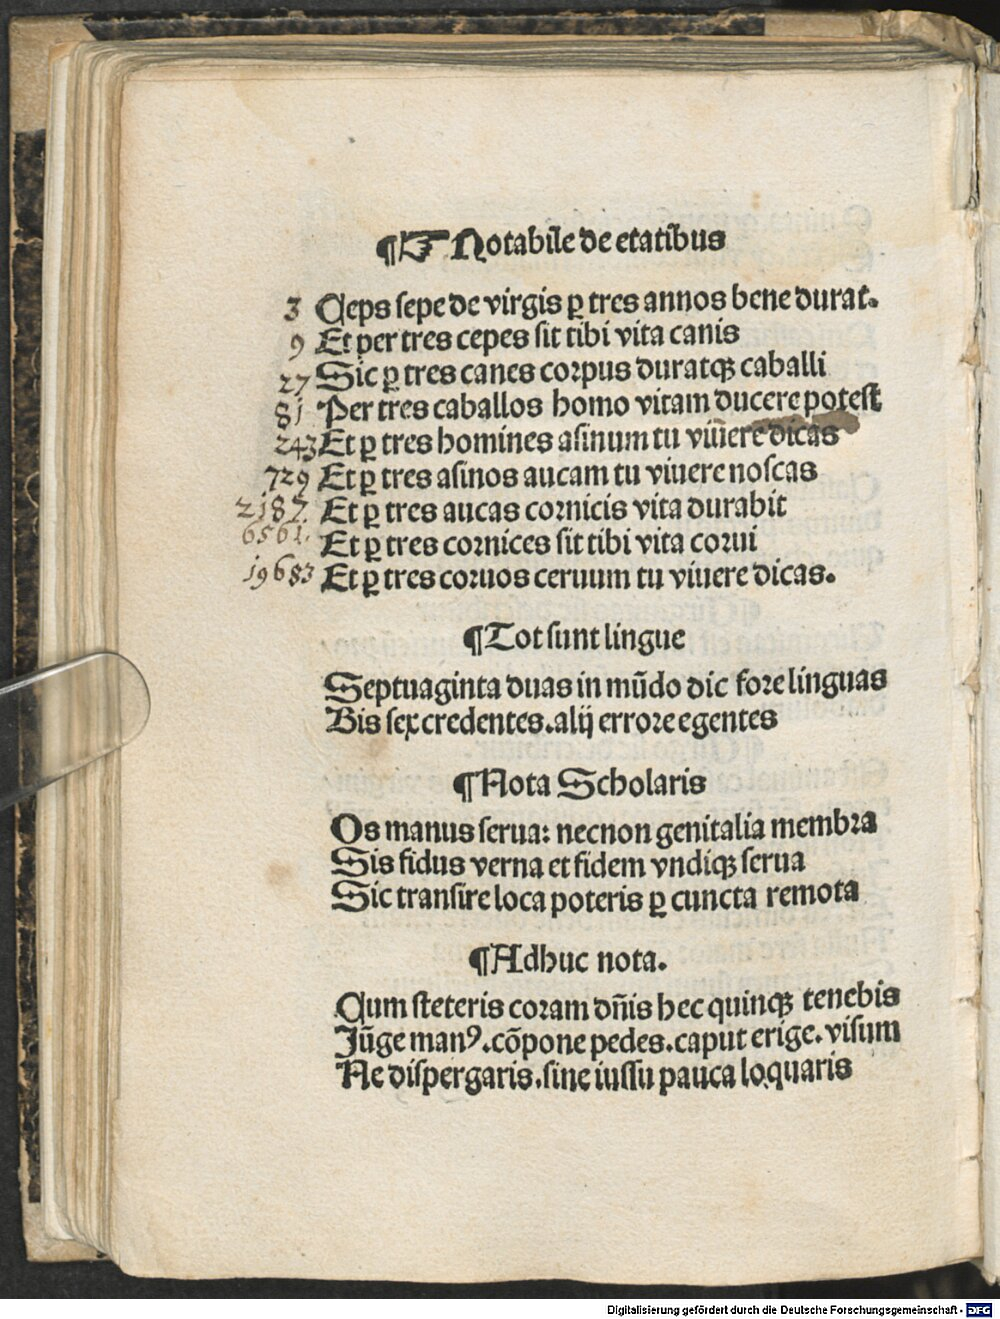 ¶☞ Notabile de etatibus
3 Ceps sepe de virgis ꝑ tres annos bene durat.
9 Et per tres cepes sit tibi vita canis
27 Sic ꝑ tres canes corpus duratqꝫ caballi
81 Per tres caballos homo vitam ducere potest
243 Et ꝑ tres homines asinum tu viuere dicas
729 Et ꝑ tres asinos aucam tu viuere noscas
2187. Et ꝑ tres aucas cornicis vita durabit
6561. Et ꝑ tres cornices sit tibi vita corui
19683 Et ꝑ tres coruos ceruum tu viuere dicas.
¶Tot sunt lingue
Septuaginta duas in mūdo dic fore linguas
Bis sex credentes. alij errore egentes
¶Nota Scholaris
Os manus serua: necnon genitalia membra
Sis fidus verna et fidem vndiqꝫ serua
Sic transire loca poteris ꝑ cuncta remota
¶Adhuc nota.
Cum steteris coram dn̄is hec quinqꝫ tenebis
Jūge manꝰ. cōpone pedes. caput erige. visum
Ne dispergaris. sine iussu pauca loquaris
Digitalisierung gefördert durch die Deutsche Forschungsgemeinschaft - DFG